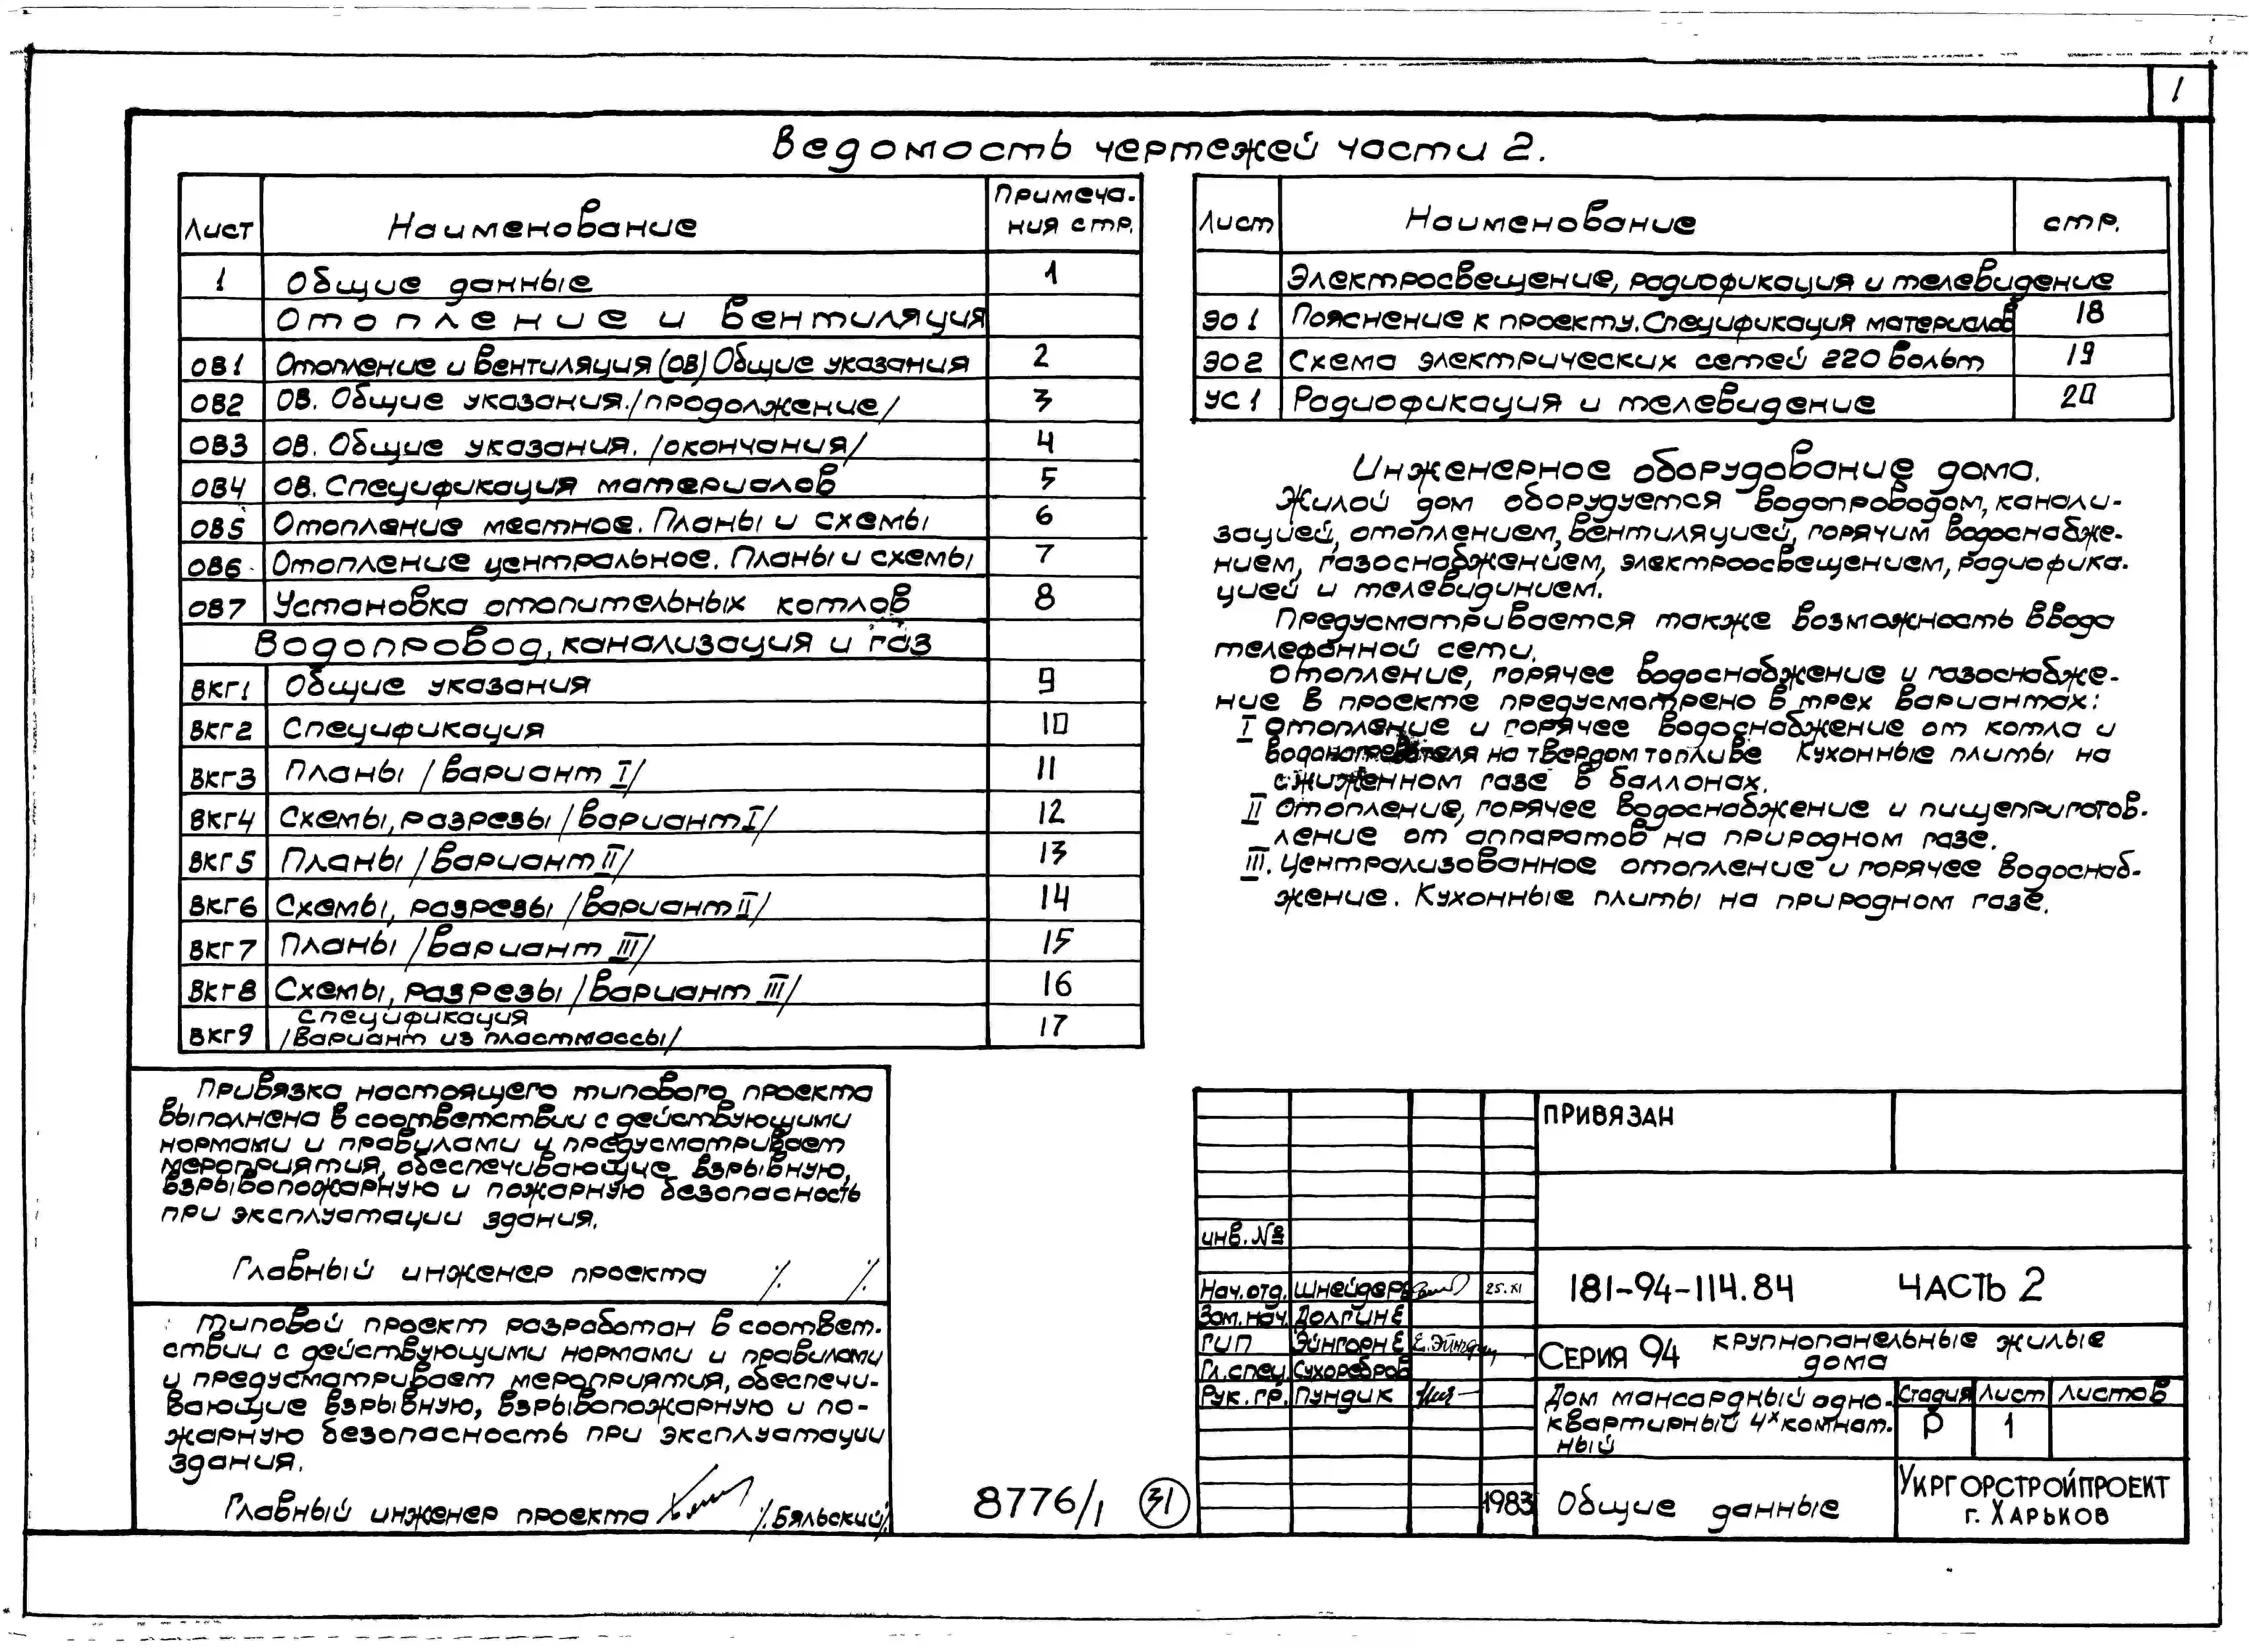 1
Ведомость чертежей части 2.
Лист Наименование Примеча-
ния стр.
1 Общие данные 1
Отопление и вентиляция
ОВ1 Отопление и вентиляция (ОВ) Общие указания 2
ОВ2 ОВ. Общие указания. /продолжение/ 3
ОВ3 ОВ. Общие указания. /окончания/ 4
ОВ4 ОВ. Спецификация материалов 5
ОВ5 Отопление местное. Планы и схемы 6
ОВ6 Отопление центральное. Планы и схемы 7
ОВ7 Установка отопительных котлов 8
Водопровод, канализация и газ
ВКГ1 Общие указания 9
ВКГ2 Спецификация 10
ВКГ3 Планы /вариант I/ 11
ВКГ4 Схемы, разрезы /вариант I/ 12
ВКГ5 Планы /вариант II/ 13
ВКГ6 Схемы, разрезы /вариант II/ 14
ВКГ7 Планы /вариант III/ 15
ВКГ8 Схемы, разрезы /вариант III/ 16
ВКГ9 спецификация
/вариант из пластмассы/ 17
Лист Наименование стр.
Электросвещение, радиофикация и телевидение
ЭО 1 Пояснение к проекту. Спецификация материалов 18
ЭО 2 Схема электрических сетей 220 вольт 19
УС 1 Радиофикация и телевидение 20
Инженерное оборудование дома.
Жилой дом оборудуется водопроводом, канали-
зацией, отоплением, вентиляцией, горячим водоснабже-
нием, газоснабжением, электроосвещением, радиофика-
цией и телевидинием.
Предусматривается также возможность ввода
телефонной сети.
Отопление, горячее водоснабжение и газоснабже-
ние в проекте предусмотрено в трех вариантах:
I Отопление и горячее водоснабжение от котла и
водонагревателя на твердом топливе Кухонные плиты на
сжиженном газе в баллонах.
II Отопление, горячее водоснабжение и пищеприготов-
ление от аппаратов на природном газе.
III. Централизованное отопление и горячее водоснаб-
жение. Кухонные плиты на природном газе.
Привязка настоящего типового проекта
выполнена в соответствии с действующими
нормами и правилами и предусматривает
мероприятия, обеспечивающие взрывную,
взрывопожарную и пожарную безопасность
при эксплуатации здания.
Главный инженер проекта /. /.
Типовой проект разработан в соответ-
ствии с действующими нормами и правилами
и предусматривает мероприятия, обеспечи-
вающие взрывную, взрывопожарную и по-
жарную безопасность при эксплуатации
здания.
Главный инженер проекта /.Бяльский/.
8776/1 31
ПРИВЯЗАН
инв. №
Нач. отд. Шнейдер 25.XI
Зам. нач. Долгин Е
ГИП Эйнгорн Е Е. Эйнгорн
Гл. спец. Сухоребров
Рук. гр. Пундик
1983
181-94-114.84 ЧАСТЬ 2
Серия 94 крупнопанельные жилые
дома
Дом мансардный одно-
квартирный 4х комнат-
ный
Стадия Лист Листов
Р 1
Общие данные
УКРГОРСТРОЙПРОЕКТ
г. ХАРЬКОВ